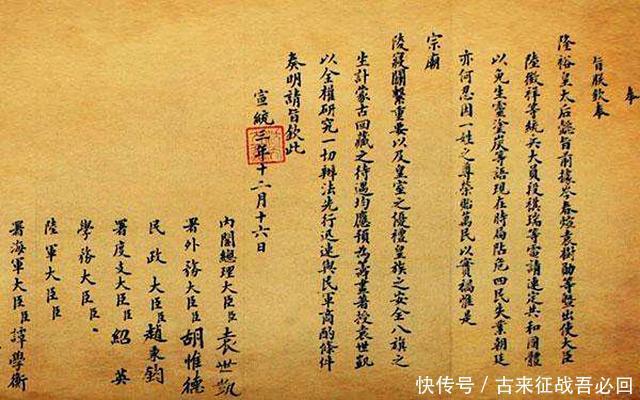 奉
旨朕欽奉
隆裕皇太后懿旨前據岑春煊袁樹勛等暨出使大臣
陸徵祥等統兵大員段祺瑞等電請速定共和國體
以免生靈塗炭等語現在時局阽危四民失業朝廷
亦何忍因一姓之尊榮貽萬民以實禍惟是
宗廟
陵寢關繫重要以及皇室之優禮皇族之安全八旗之
生計蒙古回藏之待遇均應預為籌畫著授袁世凱
以全權研究一切辦法先行迅速與民軍商酌條件
奏明請旨欽此
宣統三年十二月十六日
內閣總理大臣臣袁世凱
署外務大臣臣胡惟德
民政大臣臣趙秉鈞
署度支大臣臣紹英
學務大臣臣
陸軍大臣臣
署海軍大臣臣譚學衡
快传号／古来征战吾必回